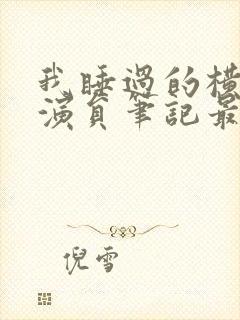 我睡過的橫
演員筆記最
倪雪